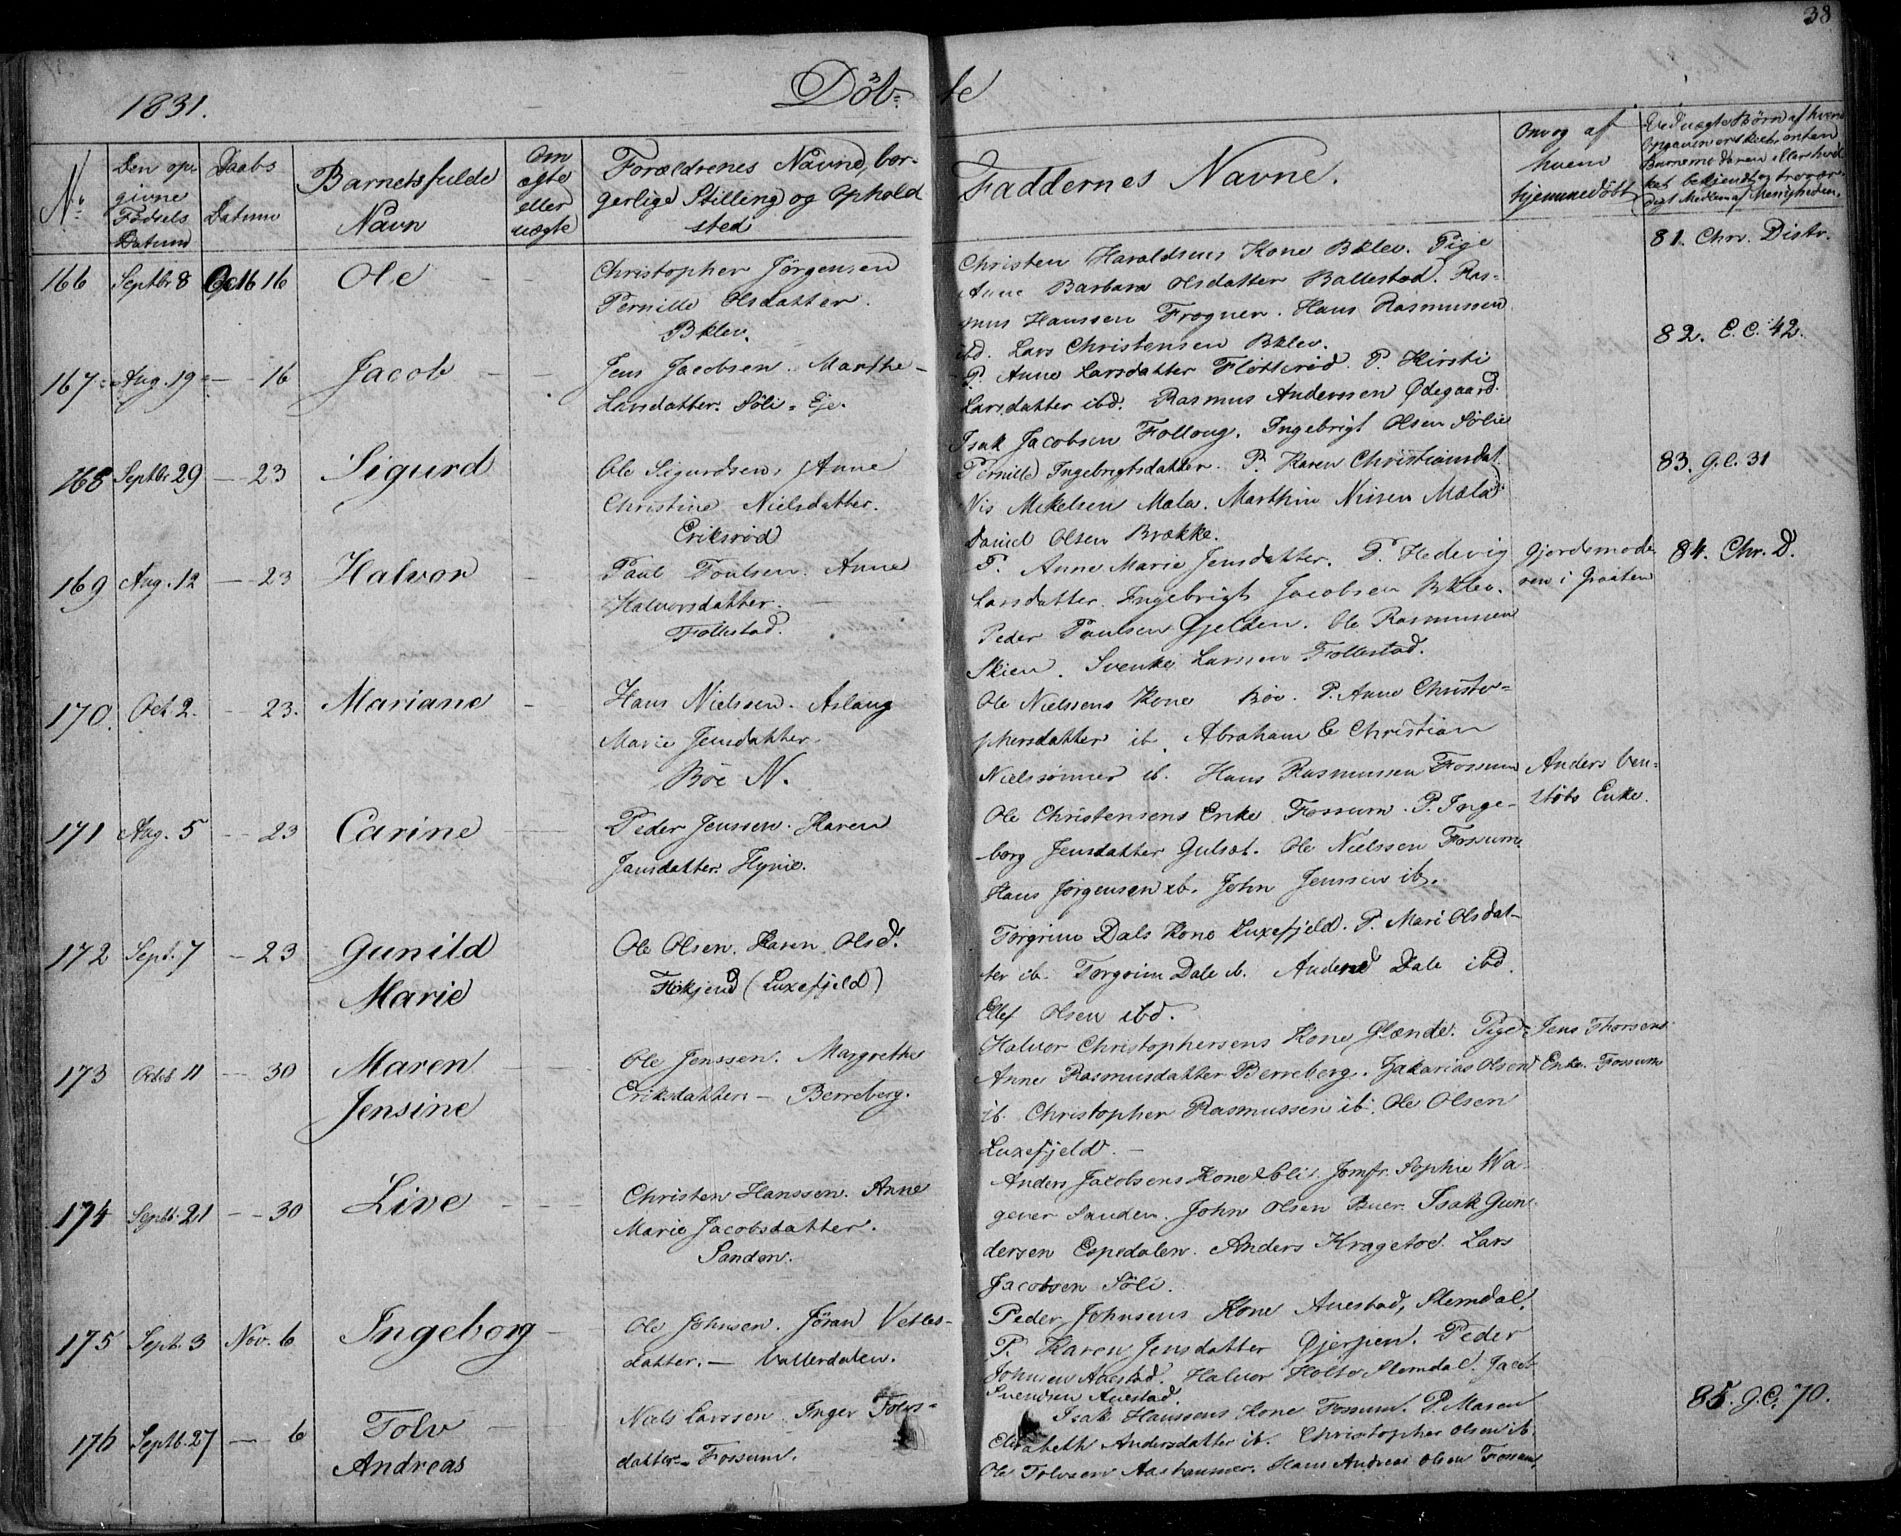 38
1831.
Döb= te
No.
Den op-
givne
Fødsels
Datum
Daabs
Datum
Barnets fulde
Navn
Om
ægte
eller
uægte
Forældrenes Navne, bor-
gerlige Stilling og Ophold
sted
Faddernes Navne.
Om og af
hvem
hjemmedöbt
Ved uægte Børn af hvem
Opgaven er skeet, enten
Barnemoderen eller hvil
ket bekjendt og trovær-
digt Medlem af Menigheden.
166 Septbr 8 Octb 16 Ole
Christopher Jörgensen
Pernille Olsdatter.
Bklev.
Christen Haraldsens Kone Bklev. Pige
Anne Barbara Olsdatter Ballestad. Ras-
mus Hanssen Frogner. Hans Rasmussen
ibd. Lars Christensen Bklev.
81. Chr. Distr.
167 Aug. 19 — 16 Jacob
Jens Jacobsen. Marthe
Larsdatter. Söli = Eje.
P. Anne Larsdatter Flötterød. P. Kirsti
Larsdatter ibd. Rasmus Anderssen Ødegaard.
Isak Jacobsen Follaug. Ingebrigt Olsen Sölie
82. E. C. 42.
168 Septbr 29 — 23 Sigurd
Ole Sigurdsen, Anne
Christine Nielsdatter.
Eriksrød
Pernille Ingebrigtsdatter. P. Karen Christiansdat.
Nis Mikelsen Mæla. Marthin Nissen Mæla
Daniel Olsen Brække.
83. G. C. 31
169 Aug. 12 — 23 Halvor
Paul Poulsen. Anne
Halvorsdatter.
Follestad.
P. Anne Marie Jensdatter. P. Hedevig
Larsdatter. Ingebrigt Jacobsen Bklev.
Peder Paulsen Gjelden. Ole Rasmussen
Skien. Svenke Larssen Follestad.
Gjordemode
ren i Graaten
84. Chr. D.
170. Oct 2. — 23. Mariane
Hans Nielssen. Aslaug
Marie Jensdatter.
Böe N.
Ole Nielssens Kone Böe. P. Anne Christo-
phersdatter ib. Abraham & Christian
Nielssönner ib. Hans Rasmussen Fossum
171 Aug. 5 — 23 Carine
Peder Jenssen. Karen
Jansdatter. Hynie.
Ole Christensens Enke Fossum. P. Inge-
borg Jensdatter Gulset. Ole Nielssen Fossum
Hans Jörgensen ib. John Jenssen ib.
Anders Ven-
stöbs Enke.
172 Sept. 7 — 23 Gunild
Marie
Ole Olsen. Karen Olsd.
(Luxefjeld)
Torgrim Dals Kone Luxefjeld. P. Mari Olsdat-
ter ib. Torgrim Dale ib. Anders Dale ibd.
Ellef Olsen ibd.
173 Octob 11 — 30 Maren
Jensine
Ole Jenssen. Margrethe
Eriksdatter. — Berreberg.
Halvor Christophersens Kone Glænde. Pige
Anne Rasmusdatter Berreberg. Zakarias Olsen
ib. Christopher Rasmussen ib. Ole Olsen
Luxefjeld. —
Jens Thorsens
Enke. Fossum
174 Septb. 21 — 30 Live
Christen Hanssen. Anne
Marie Jacobsdatter.
Sanden.
Anders Jacobsens Kone Söli. Jomfr. Sophie Wa-
gener Sanden. John Olsen Buer. Isak Gun-
dersen Espedalen. Anders Kragetoe. Lars
Jacobsen Söli.
175 Sept. 3 Nov. 6 Ingeborg
Ole Johnsen. Jöran Vetles-
datter. — Vallerdalen.
Peder Johnsens Kone Auestad, Slemdal.
P. Karen Jensdatter Gjerpen. Peder
Johnsen Auestad. Halvor Holte Slemdal. Jacob
Svendsen Auestad.
176 Septb. 27 — 6 Tolv
Andreas
Niels Larssen. Inger Tolvs-
datter. Fossum.
Isak Hanssens Kone Fossum. P. Maren
Elisabeth Andersdatter ib. Christopher Olsen ib.
Ole Tolvsen Aashammer. Hans Andreas Olsen Fossum.
85. G. C. 70.